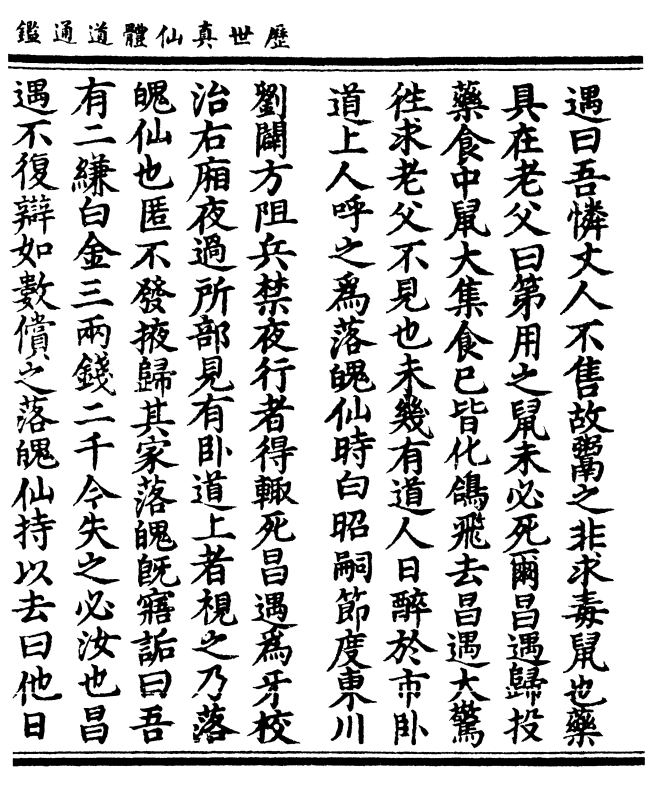 歷世真仙體道通鑑
遇曰吾憐丈人不售故鬻之非求毒鼠也藥
具在老父曰第用之鼠未必死爾昌遇歸投
藥食中鼠大集食已皆化鴿飛去昌遇大驚
徃求老父不見也未幾有道人日醉於市卧
道上人呼之爲落魄仙時白昭嗣節度東川
劉闢方阻兵禁夜行者得輙死昌遇爲牙校
治右廂夜過所部見有卧道上者視之乃落
魄仙也匿不發掖歸其家落魄旣寤詬曰吾
有二縑白金三兩錢二千今失之必汝也昌
遇不復辯如數償之落魄仙持以去曰他日